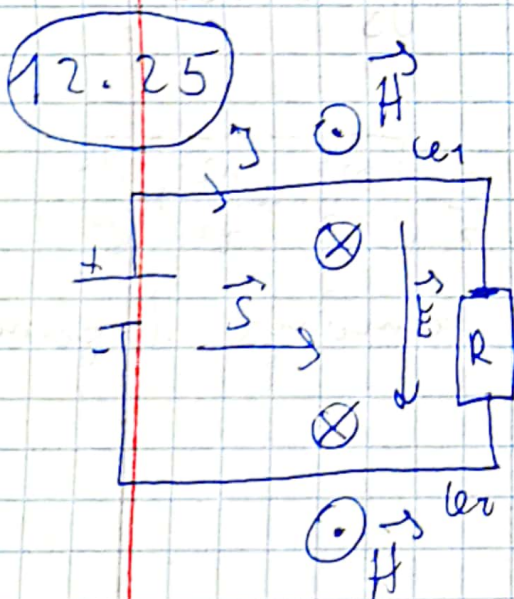 12.25
H
J
φ1
+
S
E
-
R
φ2
H